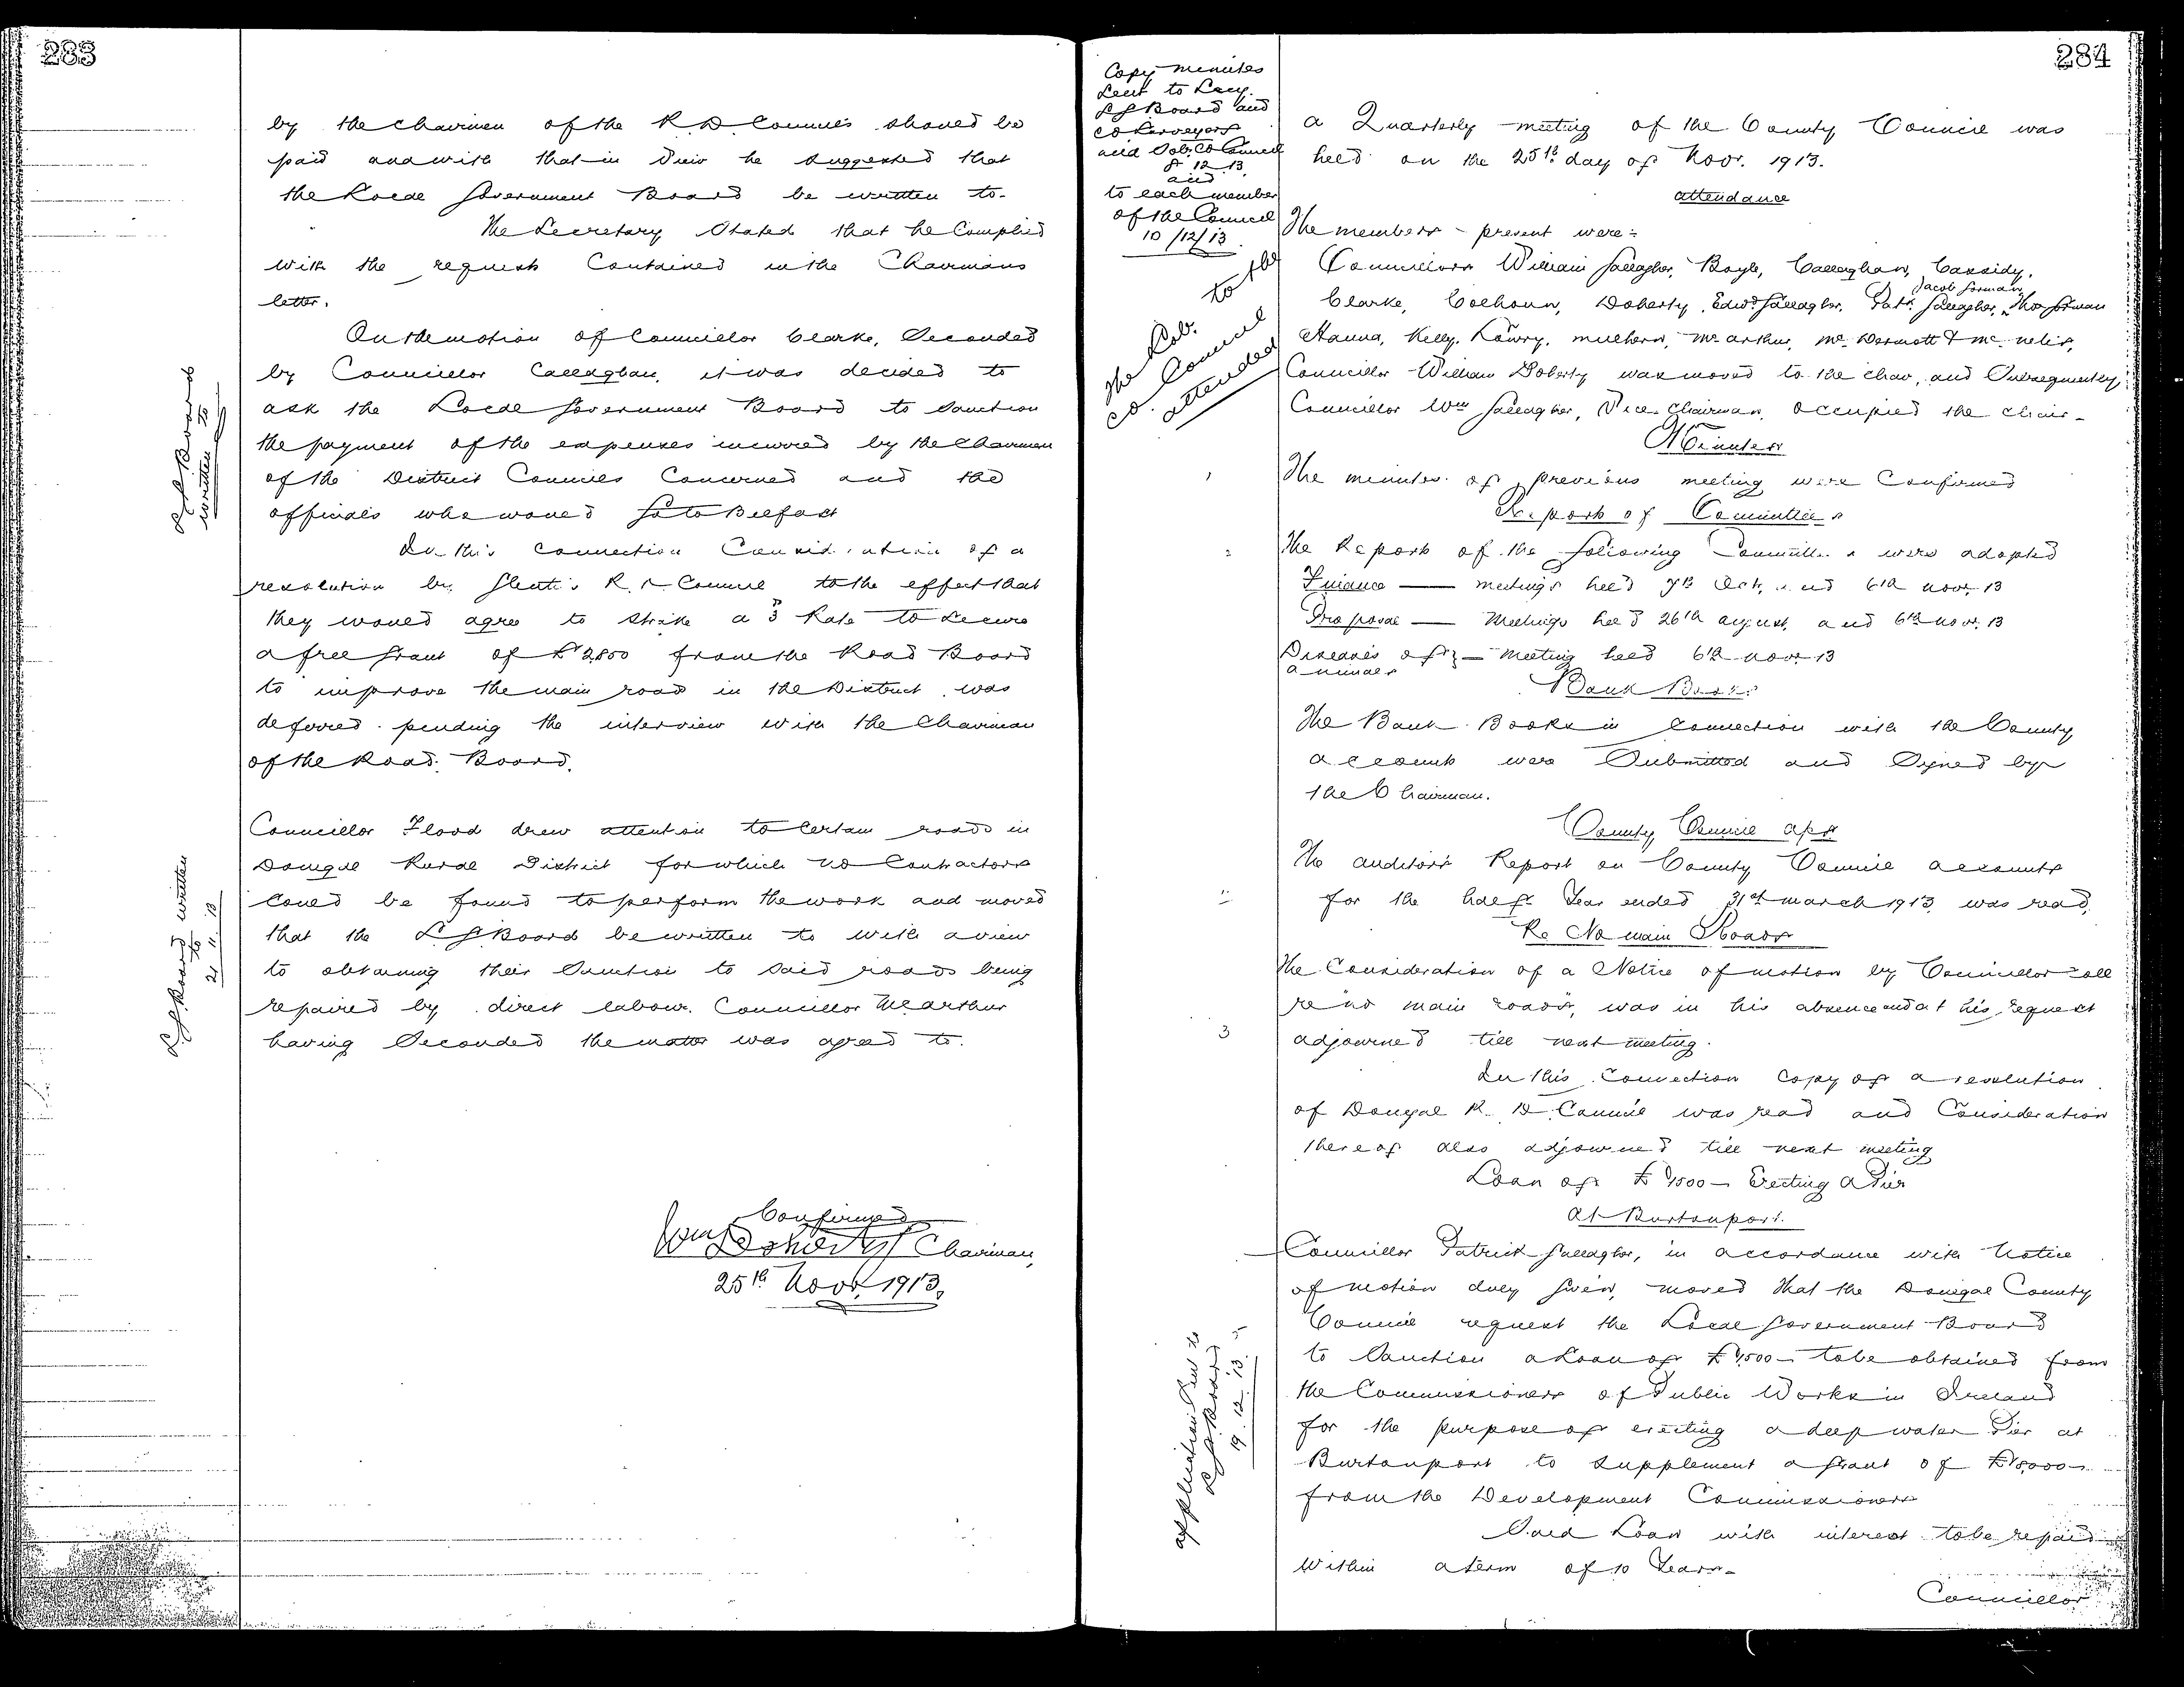 283
by the Chairmen of the R.D. Councils should be
paid and with that in view he suggested that
the Local Government Board be written to.
The Secretary Stated that he Complied
with the request Contained in the Chairmans
letter.
On the motion of Councillor Clarke, Seconded
by Councillor Callaghan, it was decided to
ask the Local Government Board to Sanction
the payment of the expenses incurred by the Chairmen
of the District Councils Concerned and the
officials who would Go to Belfast
L G Board
written to
In this Connection Consideration of a
resolution by Glenties R. D Council to the effect that
they would agree to strike a 3d Rate to secure
a free Grant of £2,800 from the Road Board
to improve the main road in the District, was
deferred pending the interview with the Chairman
of the Road Board.
Councillor Flood drew attention to Certain roads in
Donegal Rural District for which no Contractors
Could be found to perform the work and moved
that the L G Board be written to with a view
to obtaining their Sanction to said roads being
repaired by direct labour. Councillor McArthur
having Seconded the matter was agreed to.
L G Board written
to
21. 11. 13
Confirmed
Wm Doherty Chairman,
25th Novr. 1913.
284
Copy minutes
Sent to Secy.
L G Board and
Co Surveyors
and Solr. Co Council
8. 12. 13.
and
to each member
of the Council
10/12/13.
The Solr. to the
Co. Council
attended
a Quarterly meeting of the County Council was
held on the 25th day of Novr. 1913.
attendance
The members present were:
Councillors William Gallagher, Boyle, Callaghan, Cassidy,
Jacob Gorman,
Clarke, Colhoun, Doherty, Edwd Gallagher, Patk. Gallagher, Thos Gorman
Hanna, Kelly, Lowry, Mulhern, McArthur, McDermott & McNelis,
Councillor William Doherty was moved to the chair, and Subsequently
Councillor Wm Gallagher, Vice Chairman, occupied the chair-
Minutes
1 The minutes of previous meeting were Confirmed
Report of Committees
2 The Report of the following Committees were adopted
Finance — meetings held 7th Oct, and 6th Novr. 13
Proposal — Meetings held 26th August, and 6th Novr. 13
Diseases of } — Meeting held 6th Novr 13
animals
Bank Books
The Bank Books in Connection with the County
accounts were Submitted and Signed by
the Chairman.
County Council a/cs
The auditors Report on County Council accounts
for the half Year ended 31st March 1913, was read,
Re No main Roads
The Consideration of a Notice of motion by Councillor
re "no main roads", was in his absence and at his request
3 adjourned till next meeting.
In this Connection Copy of a resolution
of Donegal R. D. Council was read and Consideration
thereof also adjourned till next meeting
Loan of £1500 — Erecting a Pier
at Burtonport.
Councillor Patrick Gallagher, in accordance with Notice
of motion duly given, moved that the Donegal County
Council request the Local Government Board
to Sanction a Loan of £1,500 — to be obtained from
the Commissioners of Public Works in Ireland
for the purpose of erecting a deep water Pier at
Burtonport to supplement a Grant of
from the Development Commissioners
application Sent to
L G Board
19. 12. 13.
Said Loan with interest to be repaid
within a term of 10 Years-
Councillor